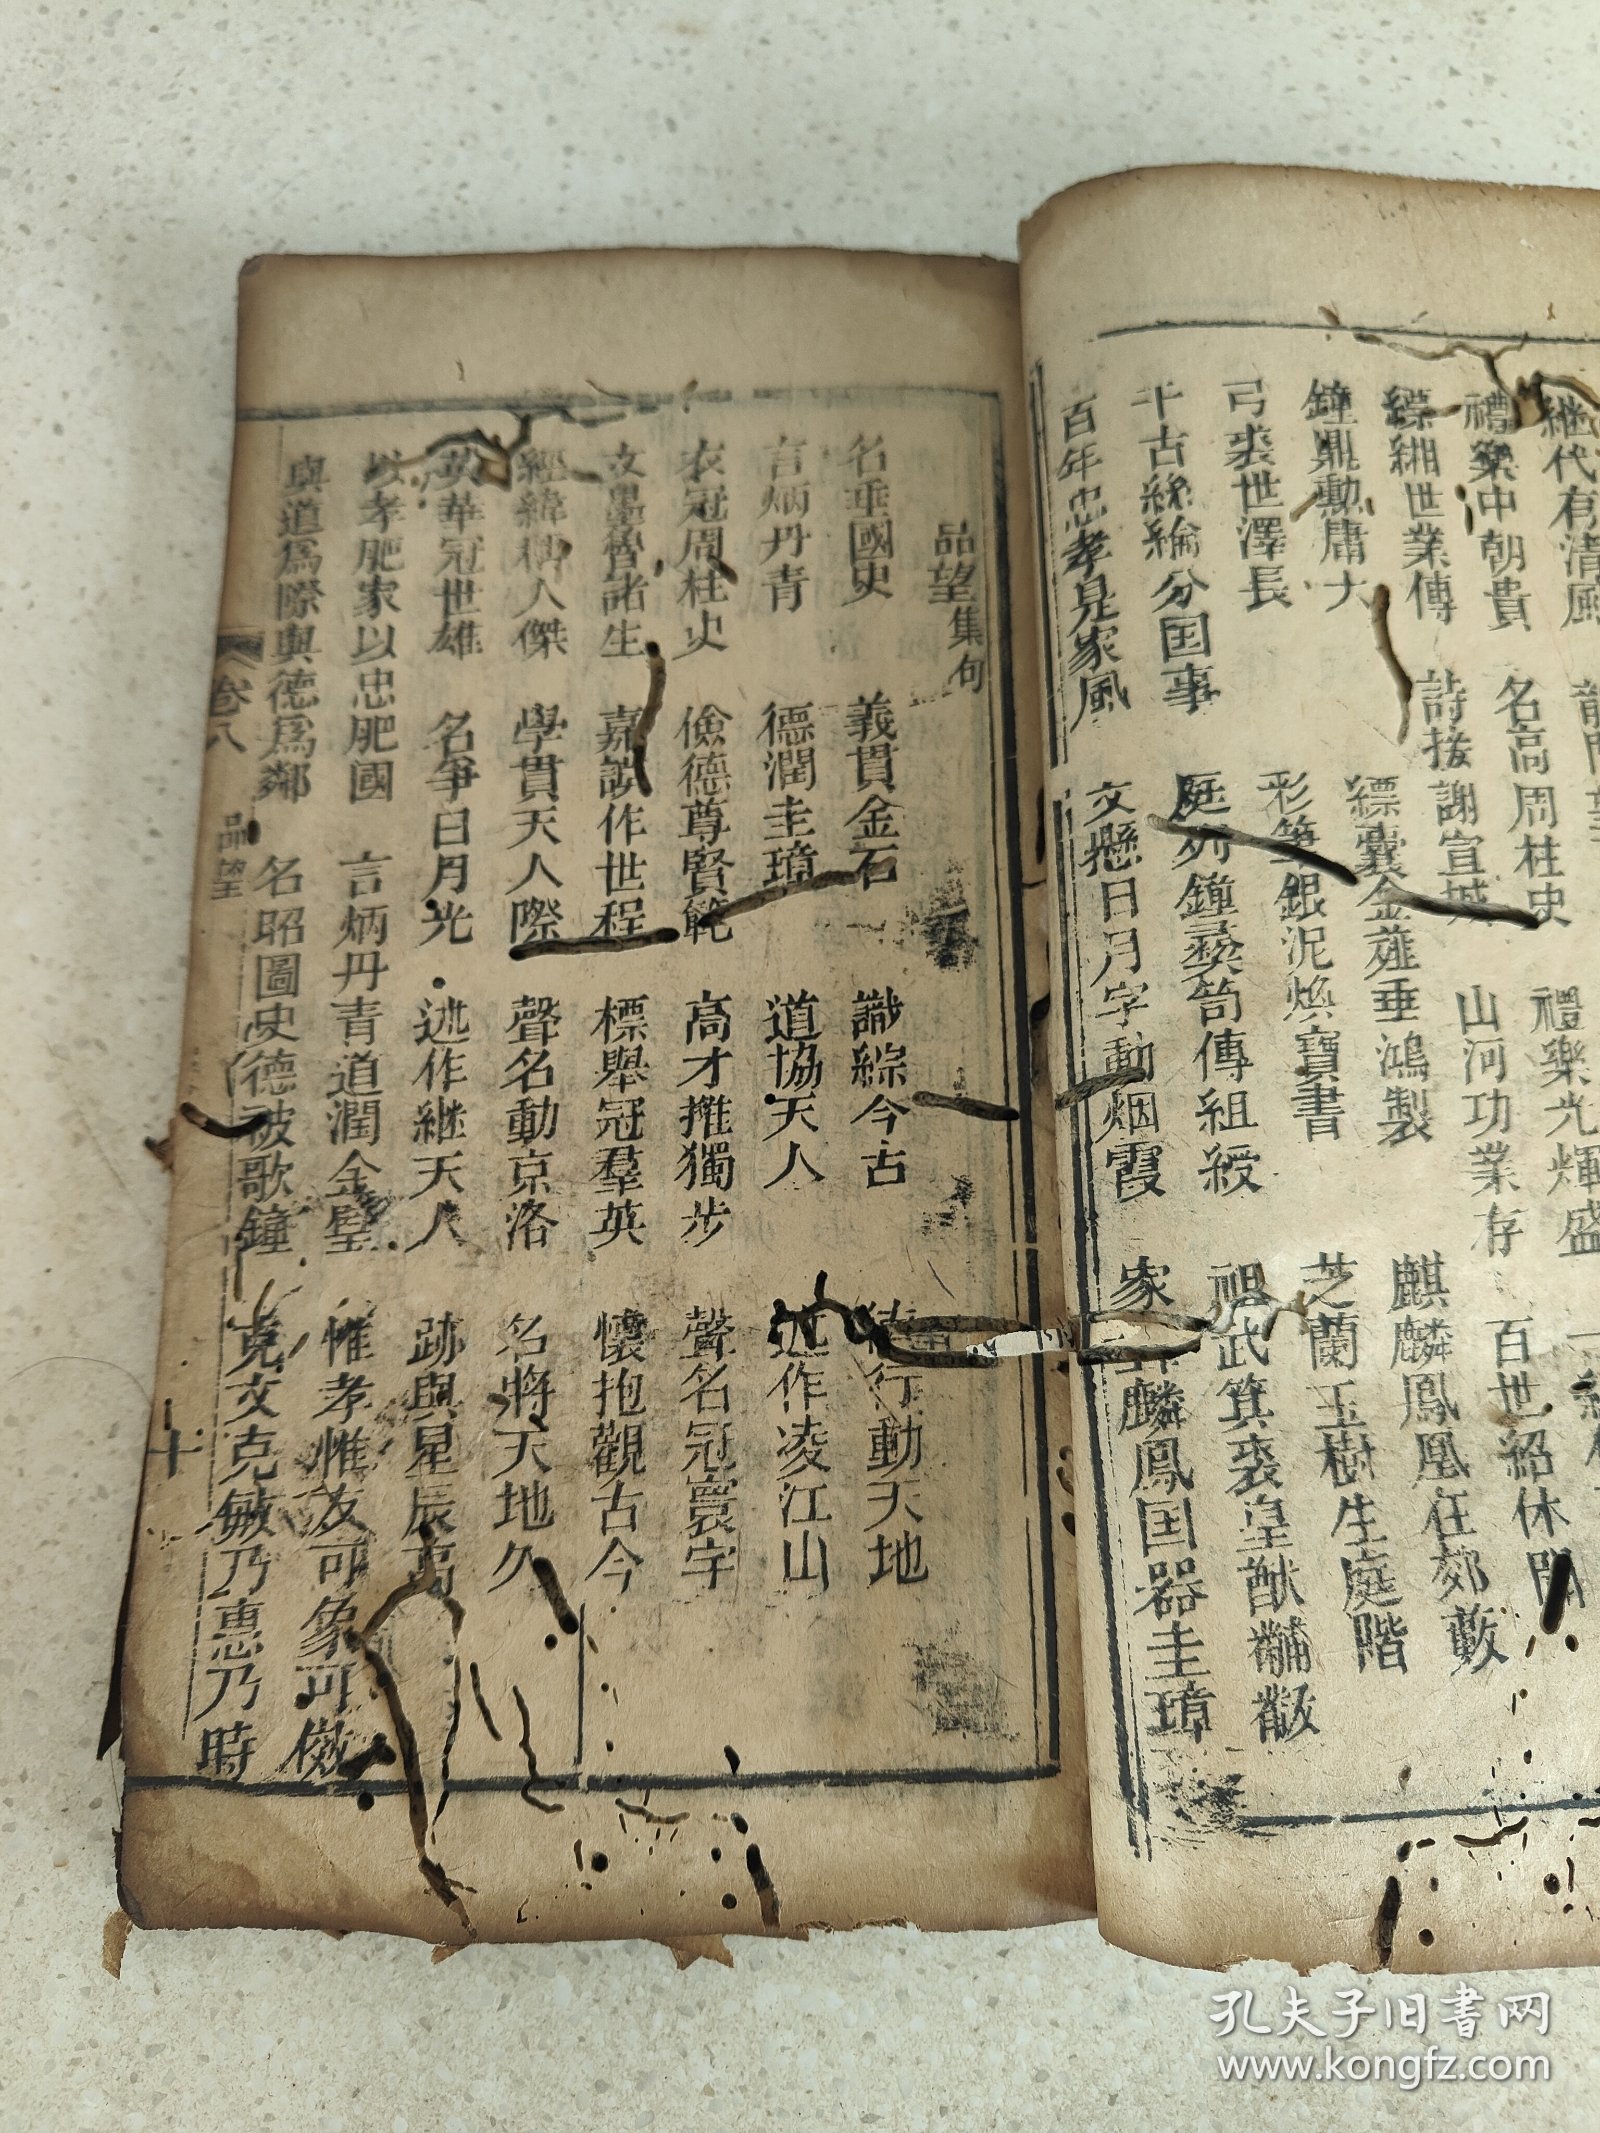 繼代有清風
禮樂中朝貴 名高周柱史 禮樂光輝盛
緗世業傳 詩接謝宣城 山河功業存 百世紹休
鐘鼎動庸大 縹囊金薤垂鴻製 麒麟鳳凰在郊藪
弓裘世澤長 彩筆銀泥煥寶書 芝蘭玉樹生庭階
千古絲綸分国事 庭列鐘彝笥傳組綬 祖武箕裘皇猷黼黻
百年忠孝見家風 文懸日月字動烟霞 家麟鳳国器圭璋
品望集句
名垂國史 義貫金石 識綜今古 行動天地
言炳丹青 德潤圭璋 道協天人 述作凌江山
衣冠周柱史 儉德尊賢範 高才推獨步 聲名冠寰宇
文墨魯諸生 嘉謨作世程 標舉冠羣英 懷抱觀古今
經緯稱人傑 學貫天人際 聲名動京洛 名將天地久
英華冠世雄 名爭日月光 述作繼天人 跡與星辰高
以孝肥家以忠肥國 言炳丹青道潤金璧 惟孝惟友可象可儆
與道爲際與德爲鄰 名昭圖史德被歌鐘 克文克敏乃惠乃時
卷八 品望 十
孔夫子旧书网
www.kongfz.com